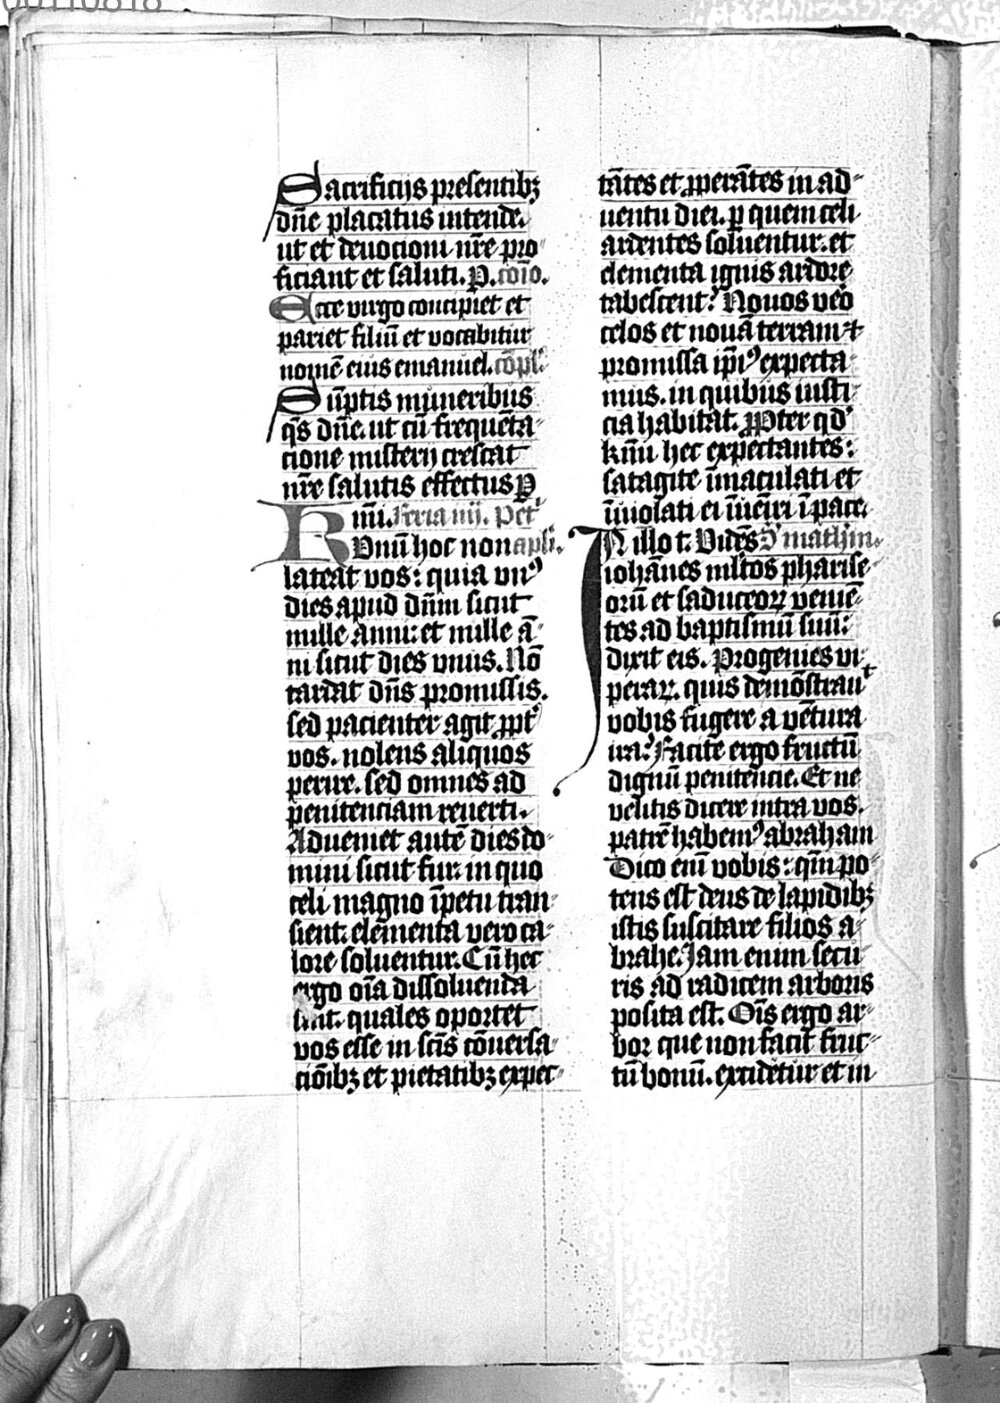 Sacrificijs presentibꝫ
dn̄e placatus intende.
ut et deuocioni nr̄e pro
ficiant et saluti. P. cōio.
Ecce virgo concipiet et
pariet filiū et vocabitur
nomē eius emanuel. cōpl'.
Sūptis muneribus
q̄s dn̄e. ut cū frequēta
cione misterij crescat
nr̄e salutis effectus P
iiii. Feria iiij. Pet'
Vnū hoc non apl'i.
lateat vos: quia vnꝰ
dies apud dn̄m sicut
mille anni: et mille ā
ni sicut dies vnus. Nō
tardat dn̄s promissis.
sed pacienter agit ꝓpt'
vos. nolens aliquos
perire. sed omnes ad
penitenciam reuerti.
Adueniet autē dies do
mini sicut fur: in quo
celi magno īpetu tran
sient: elementa vero ca
lore soluentur. Cū hec
ergo oīa dissoluenda
sint. quales oportet
vos esse in scīs cōuersa
ciōibꝫ et pietatibꝫ expec
tātes et ꝓperātes in ad
uentū diei. ꝑ quem celi
ardentes soluentur. et
elementa ignis ardore
tabescent? Nouos v̄o
celos et nouā terram ⁊
promissa ip̄iꝰ expecta
mus. in quibus iusti
cia habitat. Ꝓpter qd'
kn̄ii hec expectantes:
satagite īmaculati et
īuiolati ei īueīri ī pace.
In illo t: Vidēs S' mathm̄.
iohānes ml̄tos pharise
orū et saduceoꝝ veniē
tes ad baptismū suū:
dixit eis. Progenies vi
peraꝝ. quis demōstrauit
vobis fugere a vētura
ira? Facite ergo fructū
dignū penitencie. Et ne
velitis dicere intra vos.
patrē habemꝰ abraham
Dico eni vobis: qm̄ po
tens est deus de lapidibꝫ
istis suscitare filios a
brahe. Jam enim secu
ris ad radicem arboris
posita est. Om̄s ergo ar
bor que non facit fruc
tū bonū. excidetur et in